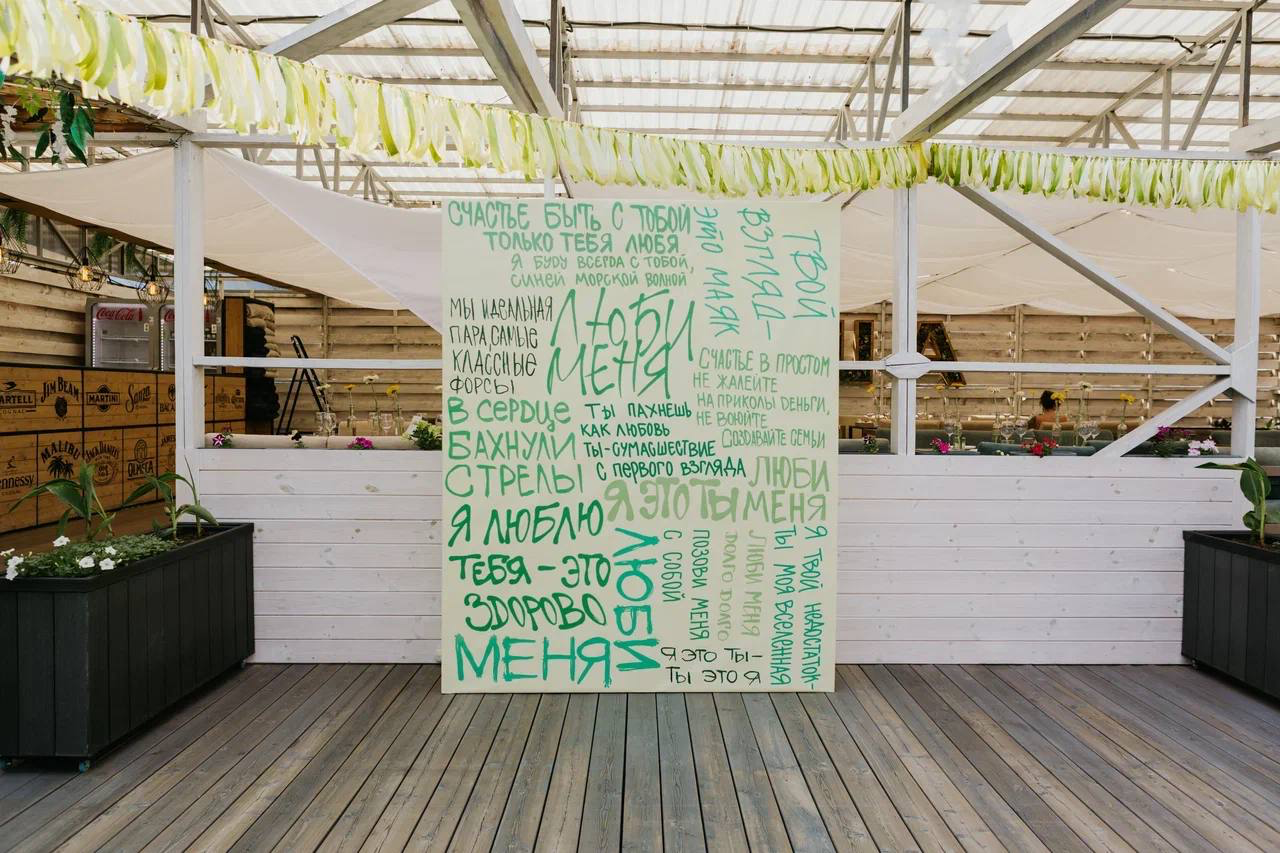 СЧАСТЬЕ БЫТЬ С ТОБОЙ
ТОЛЬКО ТЕБЯ ЛЮБЯ
Я БУДУ ВСЕГДА С ТОБОЙ,
СИНЕЙ МОРСКОЙ ВОЛНОЙ
ТВОЙ
ВЗГЛЯД-
ЭТО МАЯК
МЫ ИДЕАЛЬНАЯ
ПАРА САМЫЕ
КЛАССНЫЕ
ФОРСЫ
ЛЮБИ
МЕНЯ
СЧАСТЬЕ В ПРОСТОМ
НЕ ЖАЛЕЙТЕ
НА ПРИКОЛЫ ДЕНЬГИ,
НЕ ВОЮЙТЕ
СОЗДАВАЙТЕ СЕМЬИ
В СЕРДЦЕ
БАХНУЛИ
СТРЕЛЫ
ТЫ ПАХНЕШЬ
КАК ЛЮБОВЬ
ТЫ-СУМАСШЕСТВИЕ
С ПЕРВОГО ВЗГЛЯДА
ЛЮБИ
МЕНЯ
Я ЭТО ТЫ
Я ЛЮБЛЮ
ТЕБЯ - ЭТО
ЗДОРОВО
ЛЮБИ
МЕНЯ
ПОЗОВИ МЕНЯ
С СОБОЙ
ЛЮБИ МЕНЯ
ДОЛГО ДОЛГО
Я ТВОЙ НЕДОСТАТОК-
ТЫ МОЯ ВСЕЛЕННАЯ
Я ЭТО ТЫ-
ТЫ ЭТО Я
Coca-Cola
MARTELL
COGNAC
JIM BEAM
MARTINI
Sauza
MALIBU
JACK DANIEL'S
OLMECA
Hennessy